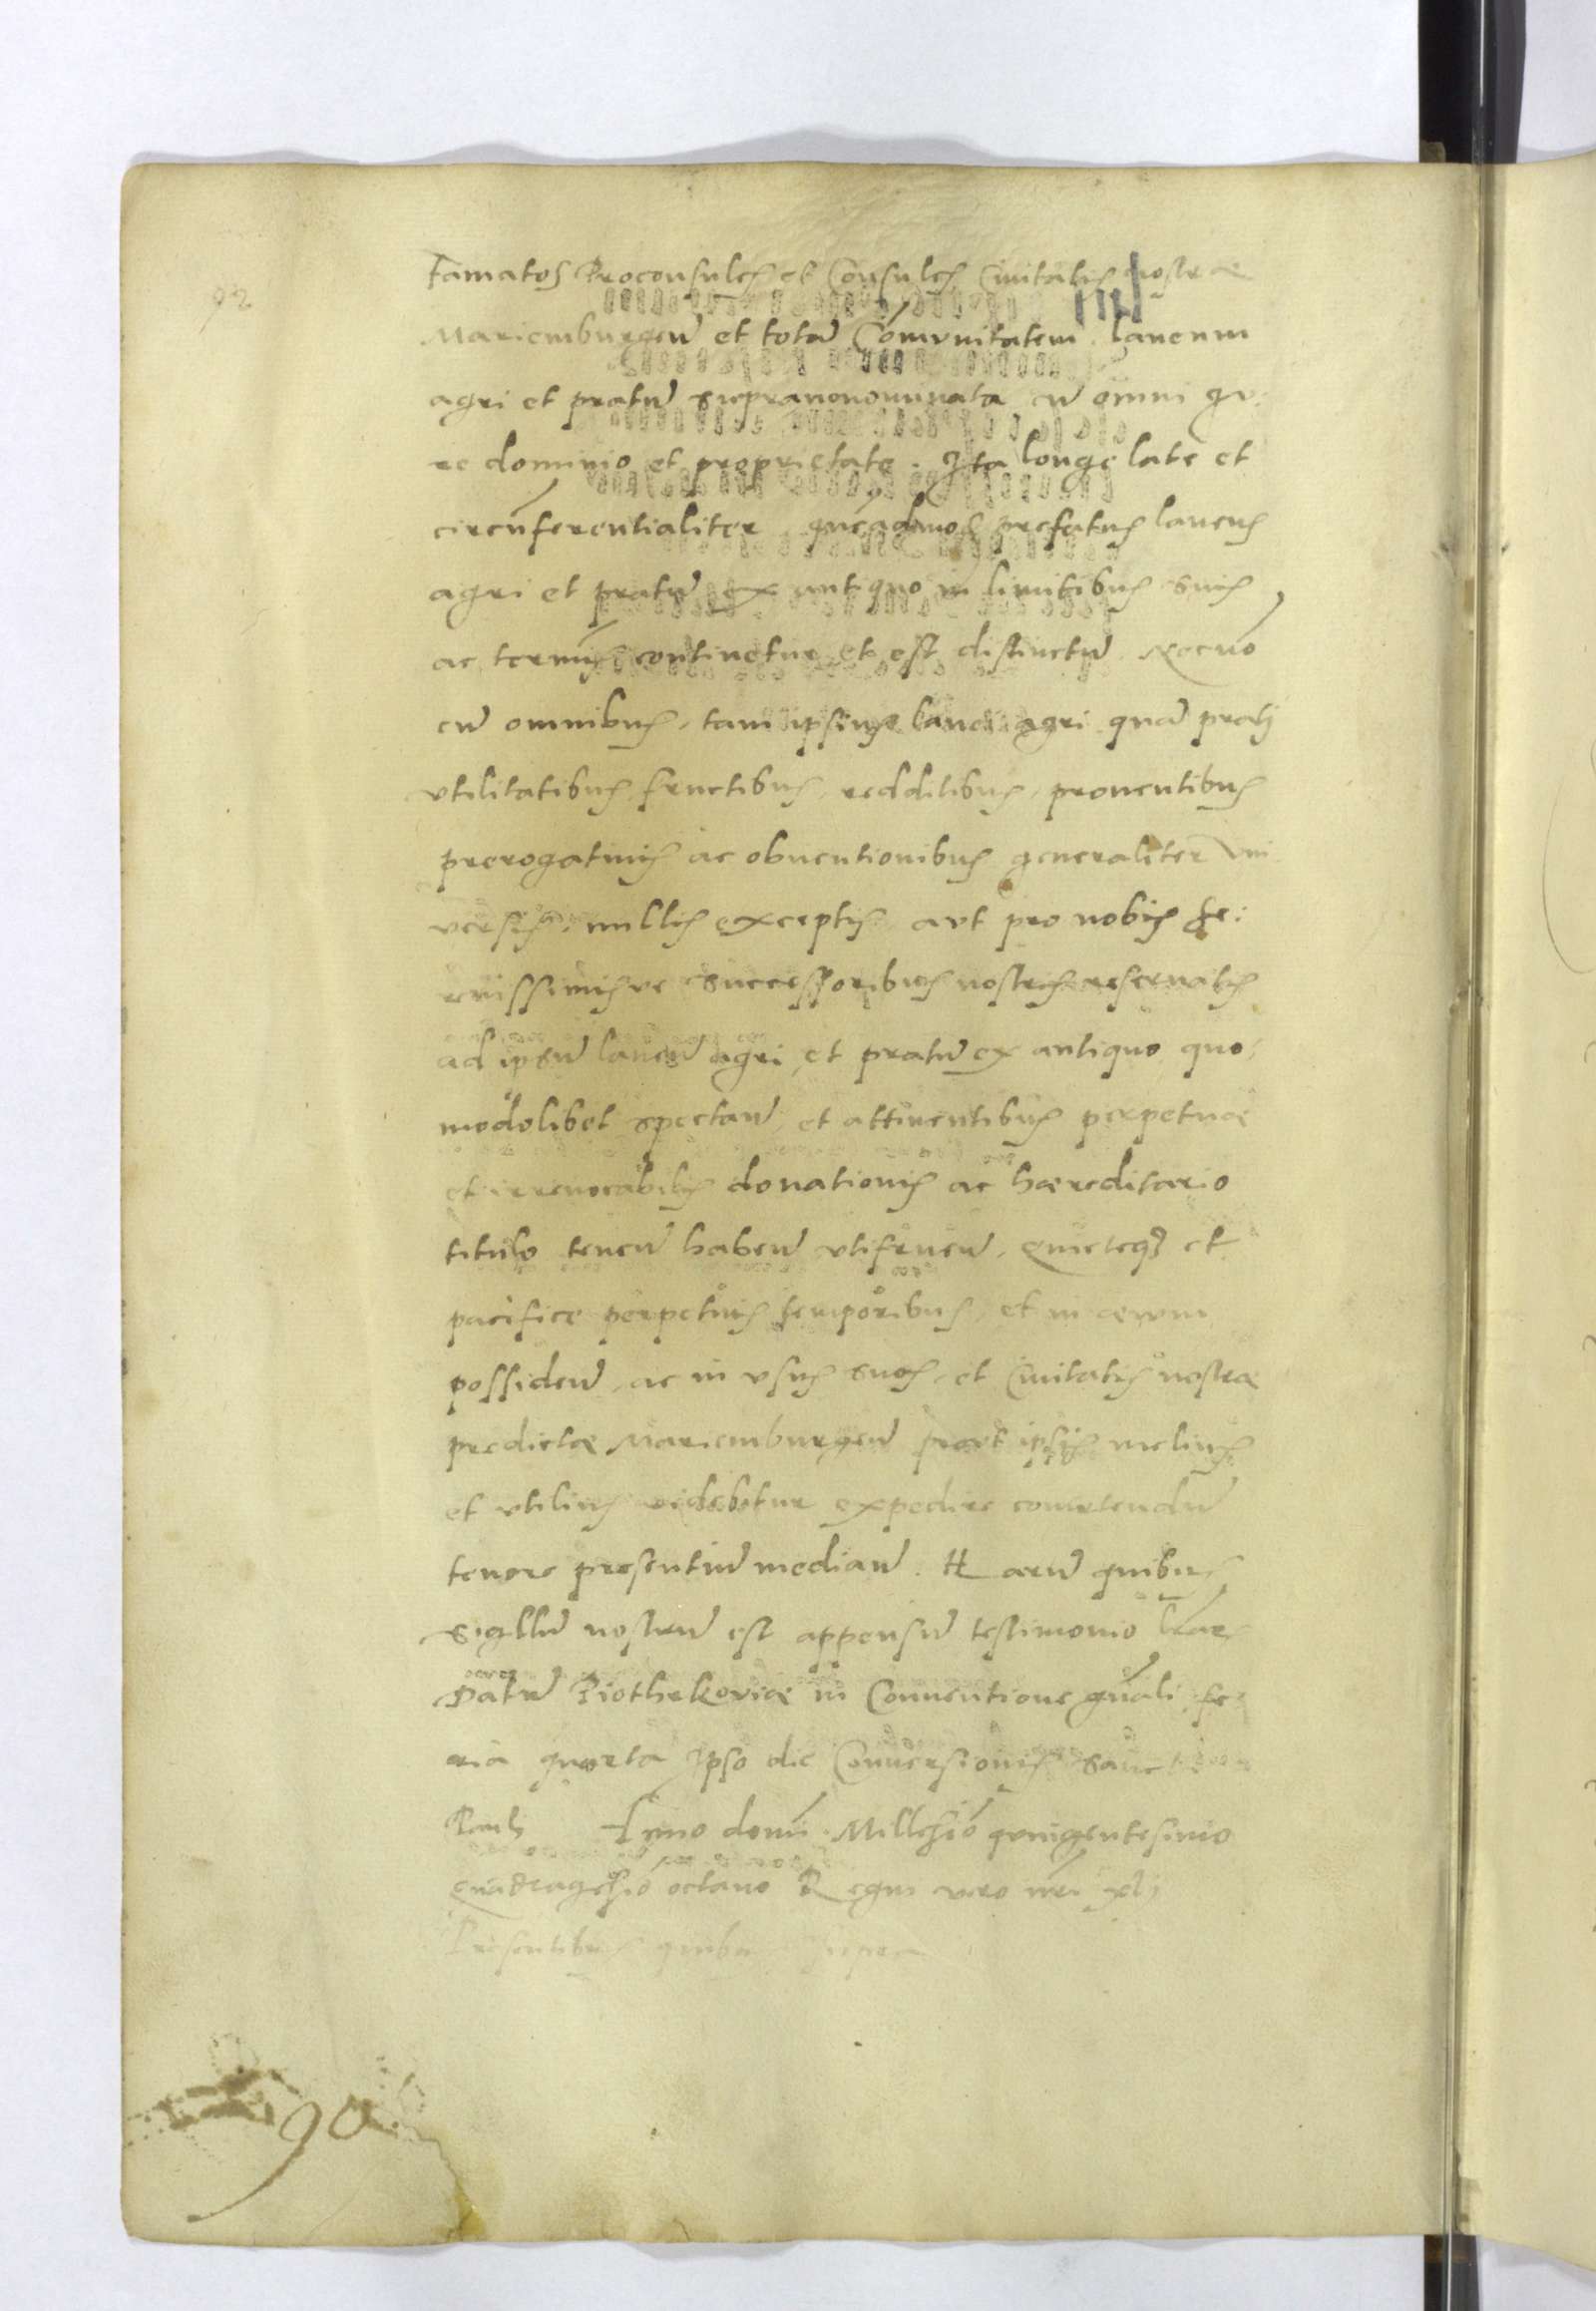 92
Famatos Proconsules et Consules Civitatis nostrae
Mariemburgen̄ et totam Com̄vnitatem laneum
agri et pratum supranonominata cū omni Iv:
re dominio et proprietate. Ita longe late et
circūferentialiter queadmod prefatus laneus
agri et pratum ex antiquo in limitibus suis
ac terminis continetur et est distinctum Necnō
cū omnibus, tam ipsius lanei agri quam pratj
vtilitatibus fructibus, redditibus, proventibus
prerogativis ac obventionibus generaliter vni
versis: nullis exceptis avt pro nobis se:
renissimisve successoribus nostris reservatis
ad ipsum laneum agri, et pratum ex antiquo quo:
modolibet spectan̄ et attinentibus perpetuae
et irrevocabilis donationis ac haereditario
titulo tenen̄ haben̄ vtifruen̄, Quieteq3 et
pacifice perpetuis temporibus, et in aevum
possiden̄, ac in vsus suos, et Civitatis nostrae
predictae Mariemburgen̄ provt ipsis melius
et vtilius videbitur expedire convertendum
tenore presentium median̄. Harum quibus
sigillum nostrum est appensum testimonio lr̄ar
Datum Piothrkoviae in Conventione gn̄ali, fe:
ria quarta Ipso die Conversionis Sancti
Pauli Anno domī Millesīo qvingentesimo
Quadragesīo octavo Regni vero nr̄i xlj
Presentibus quibus supra
90